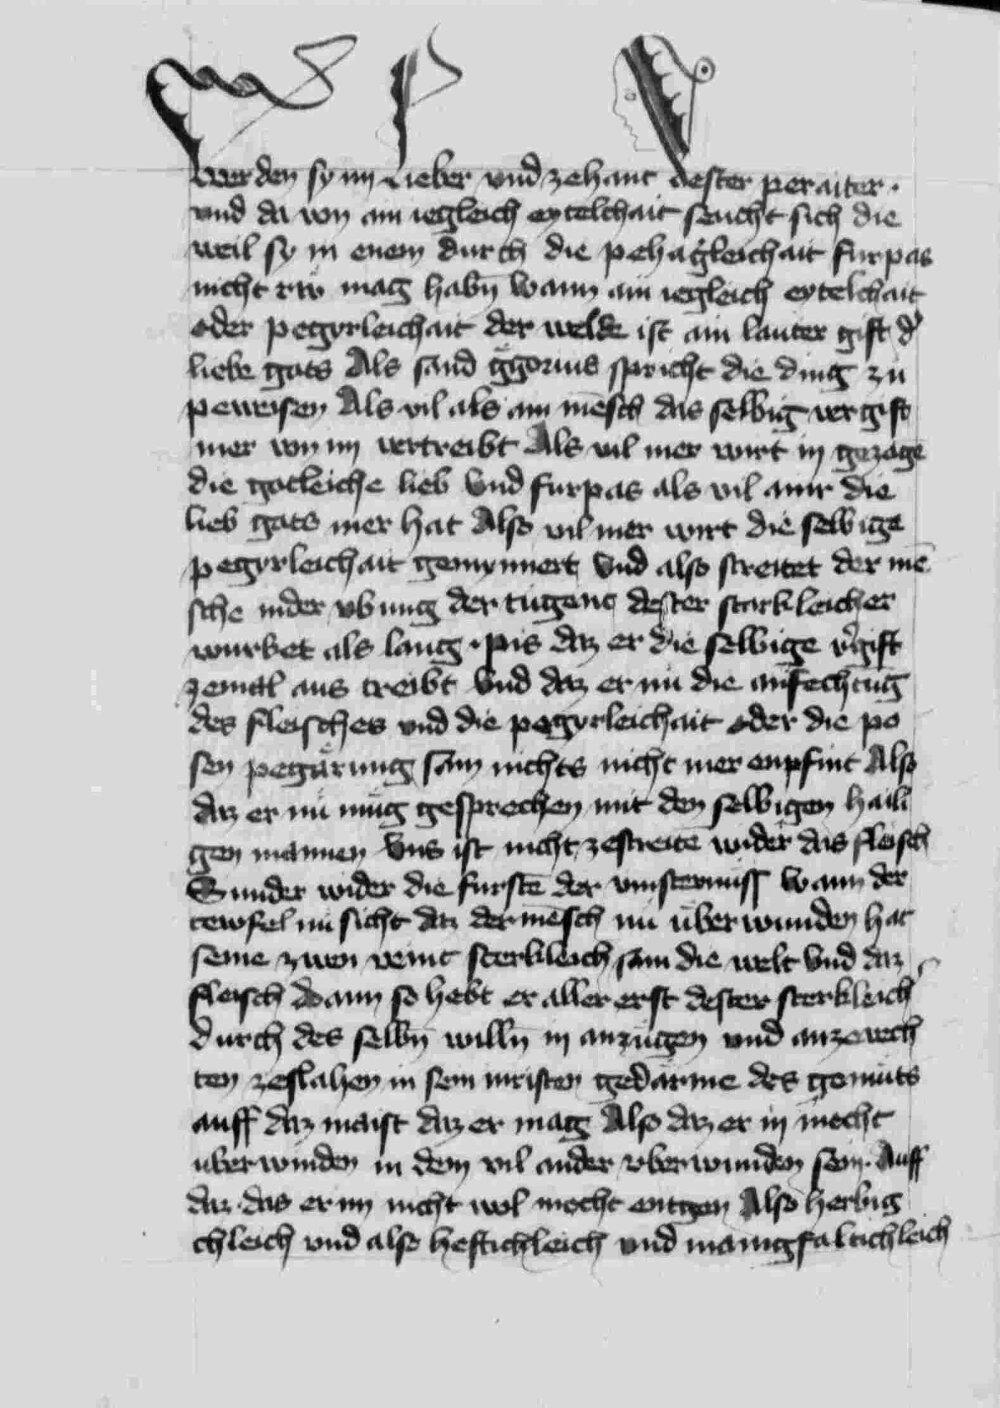 werden sy im lieber vnd zehant dester peraiter.
vnd da von ain iegleich eytelchait seucht sich die
weil sy in enem durch die pehagleichait furpas
nicht rw mag habn̄ wann ain iegleich eytelchait
oder pegyrleichait der welde ist ain lauter gift d'
liebe gots Als sand gġorius spricht die ding zu
peweisen Als vil als ain mēsch das selbig vergift
mer von im vertreibt Als vil mer wirt in gezogē
die gotleiche lieb Vnd furpas als vil ainr die
lieb gots mer hat Also vil mer wirt die selbige
pegyrleichait gemynnert Vnd also streitet der mē
sche inder vbung der tugent dester starkleicher
wurbet als lang · pis daz er die selbige v'gift
zemal aus treibt Vnd daz er nu die anfechtūg
des fleisches vnd die pegyrleichait oder die po
sen pegärung sam nichts nicht mer enpfint Also
daz er nu mug gesprechen mit den selbigen haili
gen mannen Vns ist nicht zestreitē wider das fleisch
Sunder wider die furstē der vinsternuss Wann der
tewfel nu sicht daz der mēsch nu überwunden hat
seine zwen veint sterkleich sam die welt Vnd daz
fleisch dann so hebt er aller erst dester sterkleich
durch des selbn̄ willn̄ in anzugen vnd anzevech
ten zeslahen in sein inristen gedärme des gemüts
auff daz maist daz er mag Also daz er in mocht
uberwinden in dem vil ander vberwunden sein. Auff
daz · das er im nicht wol mocht entgen Also herbig
chleich vnd also heftichleich vnd manigfaltichleich